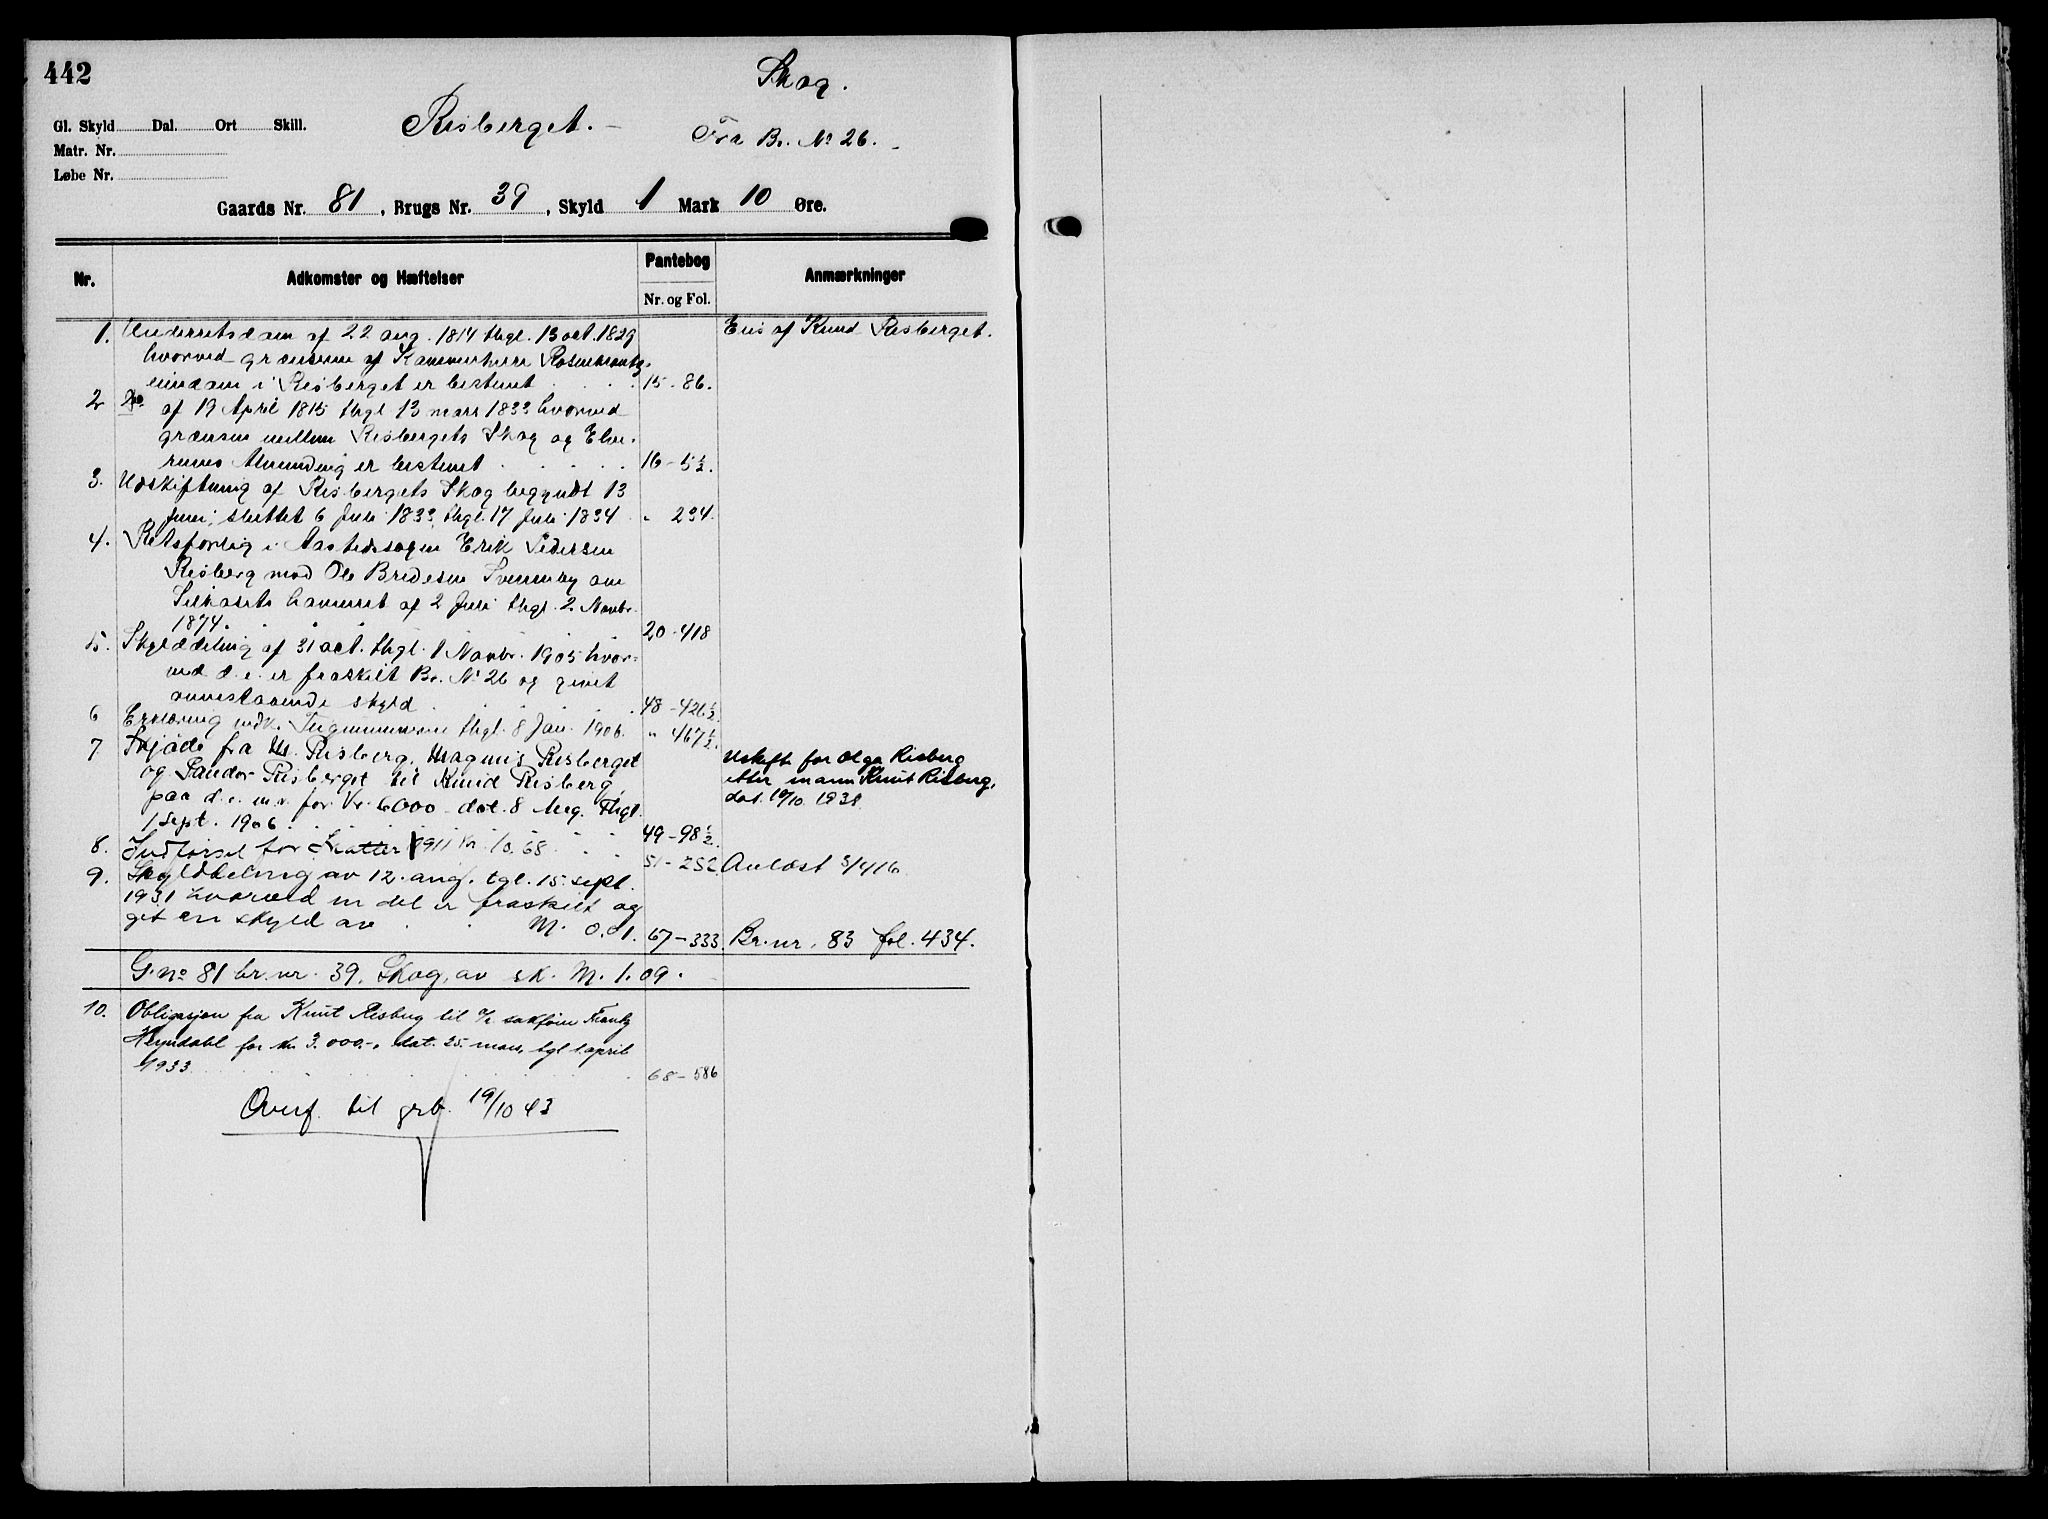 442
Skog.
Gl. Skyld Dal. Ort Skill.
Risberget.
Fra Br. No 26.
Matr. Nr.
Løbe Nr.
Gaards Nr. 81, Brugs Nr. 39, Skyld 1 Mark 10 Øre.
Nr. Adkomster og Hæftelser Pantebog Anmærkninger
Nr. og Fol.
1. Underretsdom af 22 aug. 1814 thgl. 13 oct. 1829 Eies af Knud Risberget.
hvorved grænserne af Kammerherre Rosenkrantz
eiendom i Risberget er bestemt 15 - 86.
2 Do af 19 April 1815 thgl 13 mars 1833 hvorved
grænsen mellem Risbergets Skog og Elve-
rums Almending er bestemt 16 - 5½.
3. Udskiftning af Risbergets Skog begyndt 13
juni, sluttet 6 Juli 1833, thgl. 17 Juli 1834 " 234.
4. Retsforlig i Aastedssagen Erik Pedersen
Risberg mod Ole Bredesen Svenneby om
havneret af 2 Juli thgl. 2. Novbr.
1874. 20 - 418
5. Skylddeling af 31 oct. thgl. 1 Novbr. 1905 hvor-
ved d. e. er fraskilt Br. No 26 og givet
ovenstaaende skyld 48 - 426½.
6 Erklæring vedk. thgl. 8 Jan. 1906. " 467½.
7 Skjøde fra M. Risberg, Magnus Risberget Uskifte for Olga Risberg
og Sander Risberget til Knud Risberg, etter mann Knut Risberg,
paa d. e. m. v. for Kr. 6000 dat. 8 Aug. Thgl. dat. 19/10 1938
1 Sept. 1906 49 - 98½.
8. Indførsel for Skatter 1911 Kr. 10.68 51 - 252 Avlæst 5/4 16
9. Skylddeling av 12. aug. tgl. 15. sept.
1931 hvorved en del er fraskilt og
git en skyld av M. 0.01. 67 - 333. Br. nr. 83 fol. 434.
G. no 81 br. nr. 39. Skog, av sk. M. 1.09.
10. Obligasjon fra Knut Risberg til o/r sakfører Frantz
Heyndahl for kr 3.000.-, dat. 25. mars, tgl 1. april
1933 68 - 586
Overf. til grb. 19/10 43